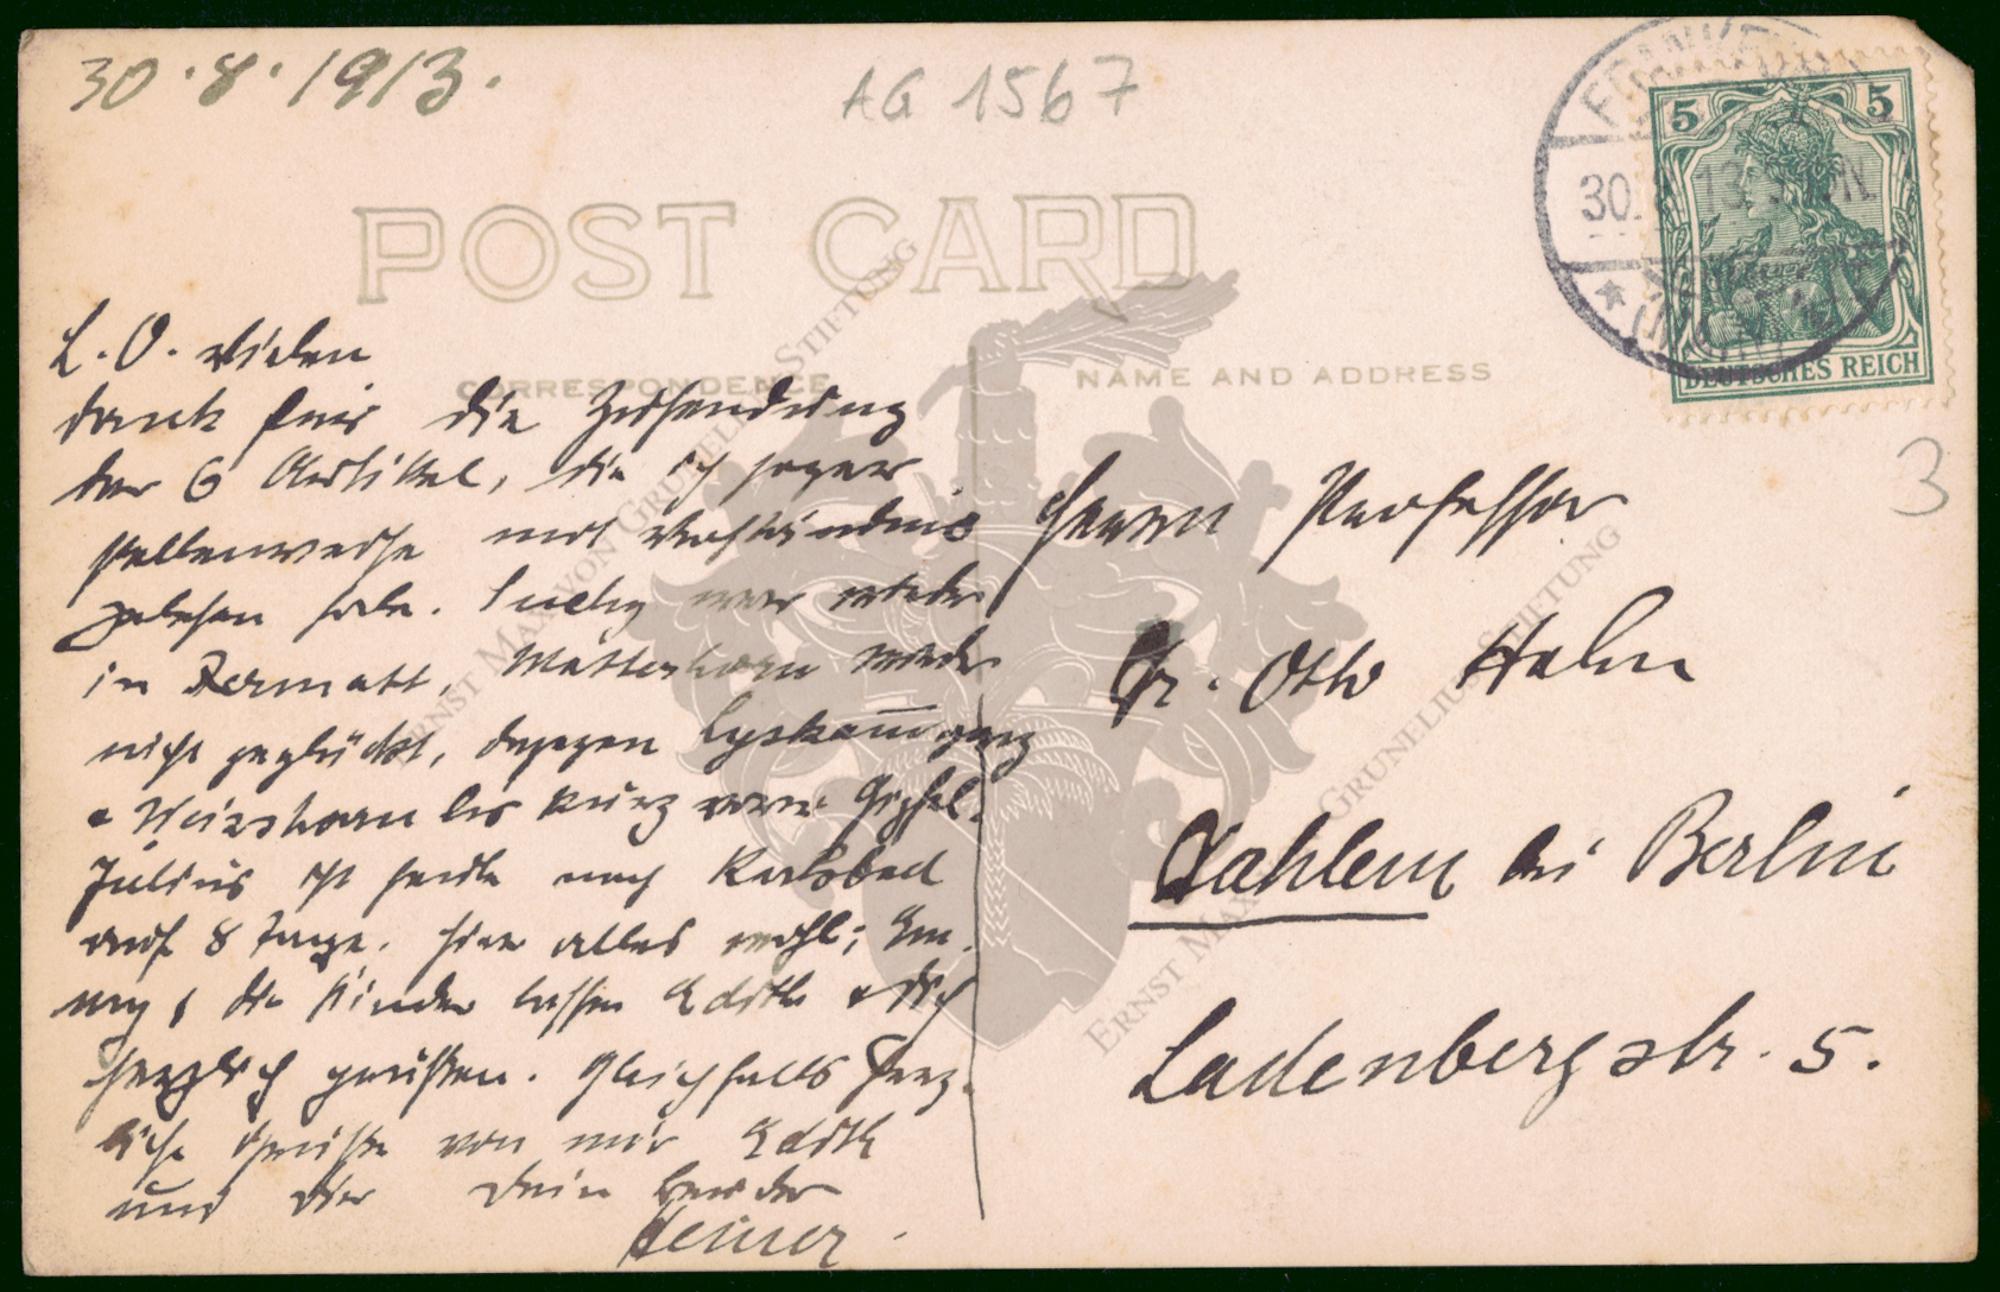 30.8.1913.
AG 1567
POST CARD
CORRESPONDENCE
NAME AND ADDRESS
5 5
DEUTSCHES REICH
30. 13.
(MAIN)
3
L. O. Vielen
Dank für die Zusendung
der 6 Artikel, die ich sogar
stellenweise mit Verständnis
gelesen habe. war wieder
in Zermatt, Matterhorn wieder
nicht geglückt, dagegen Lyskamm ganz
+ Weisshorn bis kurz vorm Gipfel.
Julius ist heute nach Karlsbad
auf 8 Tage. Hier alles wohl; Em-
my + die Kinder lassen Edith + Dich
herzlich grüßen. Gleichfalls herz-
liche Grüße von mir Edith
und Dir Dein Bruder
Heiner.
Herrn Professor
Dr. Otto Hahn
Dahlem bei Berlin
Ladenbergstr. 5.
ERNST MAX VON GRUNELIUS STIFTUNG
ERNST MAX VON GRUNELIUS STIFTUNG